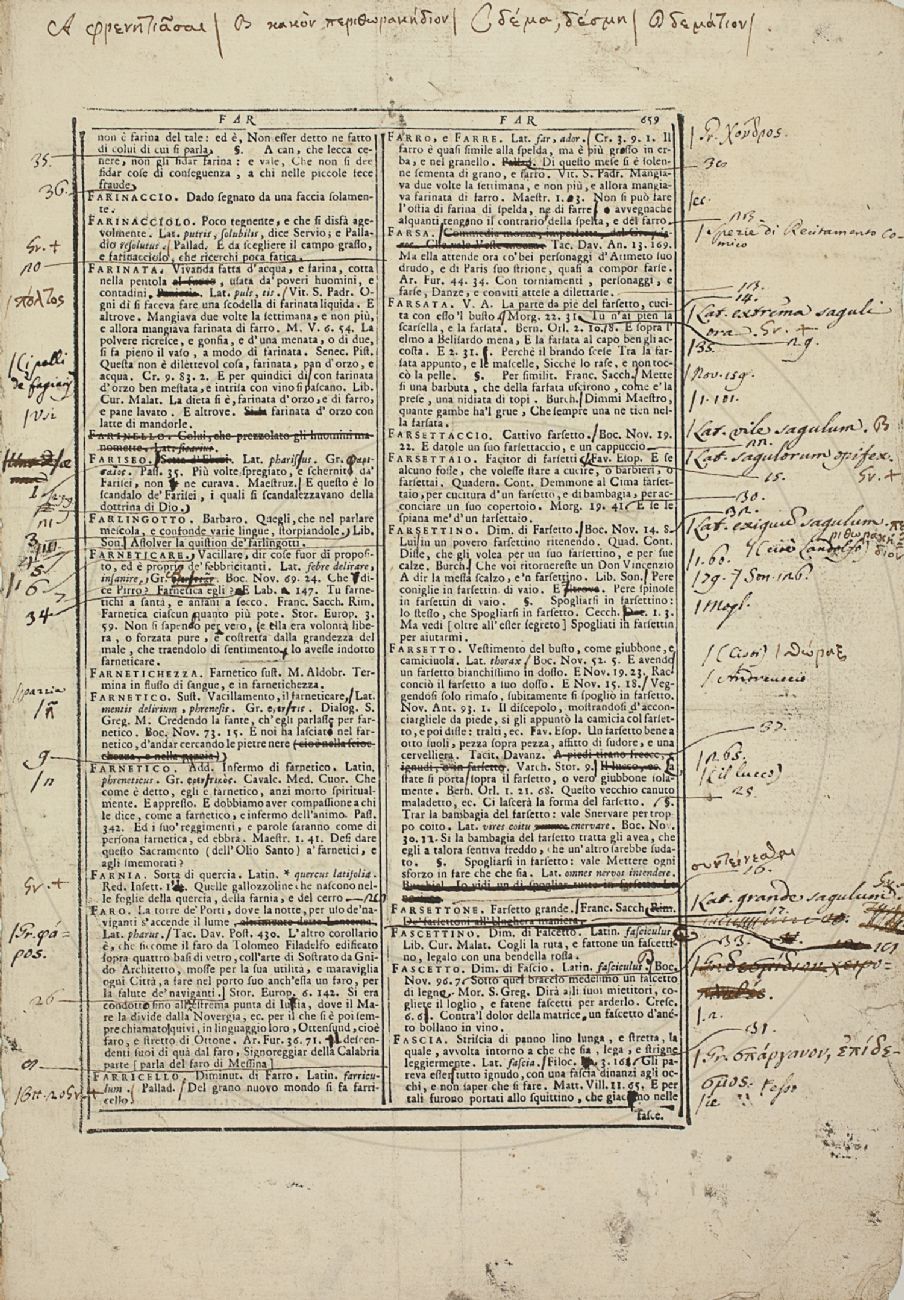 A φρενητιᾶσαι / B κακὸν περιθωρακήδιον / C δέμα, δέσμη / D δεμάτιον /
FAR FAR 659
non è farina del tale: ed è, Non esser detto ne fatto
di colui di cui si parla, §. A can, che lecca ce-
nere, non gli fidar farina: e vale, Che non si dee
fidar cose di conseguenza, a chi nelle piccole fece
fraude,
FARINACCIO. Dado segnato da una faccia solamen-
te.
FARINACCIOLO. Poco tegnente, e che si disfà age-
volmente. Lat. putris, solubilis, dice Servio; e Palla-
dio resolutus. Pallad. E da scegliere il campo grasso,
e farinacciolo, che ricerchi poca fatica.
FARINATA. Vivanda fatta d'acqua, e farina, cotta
nella pentola al fuoco, usata da' poveri huomini, e
contadini. Lat. puls, tis. Vit. S. Padr. O-
gni dì si faceva fare una scodella di farinata liquida. E
altrove. Mangiava due volte la settimana, e non più,
e allora mangiava farinata di farro. M. V. 6. 54. La
polvere ricresce, e gonfia, e d'una menata, o di due,
si fa pieno il vaso, a modo di farinata. Senec. Pist.
Questa non è dilettevol cosa, farinata, pan d'orzo, e
acqua. Cr. 9. 83. 2. E per quindici dì, con farinata
d'orzo ben mestata, e intrisa con vino si pascano. Lib.
Cur. Malat. La dieta si è, farinata d'orzo, e di farro,
e pane lavato. E altrove. farinata d'orzo con
latte di mandorle.
FARINELLO. Colui, che prezzolato gli huomini ma-
nomette. Lat. sicarius.
FARISEO. Lat. pharisæus. Gr.
Pass. 35. Più volte spregiato, e schernito da'
Farisei, non ne curava. Maestruz. E questo è lo
scandalo de' Farisei, i quali si scandalezzavano della
dottrina di Dio.
FARLINGOTTO. Barbaro. Quegli, che nel parlare
mescola, e confonde varie lingue, storpiandole. Lib.
Son. Assolver la quistion de' farlingotti.
FARNETICARE. Vacillare, dir cose fuor di proposi-
to, ed è proprio de' febbricitanti. Lat. febre delirare,
insanire, Gr. Boc. Nov. 69. 24. Che dì-
ce Pirro? Farnetica egli? E Lab. 147. Tu farne-
tichi a santà, e ansani a secco. Franc. Sacch. Rim.
Farnetica ciascun quanto più pote. Stor. Europ. 3.
59. Non si sapendo per vero, se ella era volontà libe-
ra, o forzata pure, e costretta dalla grandezza del
male, che traendolo di sentimento, lo avesse indotto
farneticare.
FARNETICHEZZA. Farnetico sust. M. Aldobr. Ter-
mina in flusso di sangue, e in farnetichezza.
FARNETICO. Sust. Vacillamento, il farneticare. Lat.
mentis delirium, phrenesis. Gr. Dialog. S.
Greg. M. Credendo la fante, ch'egli parlasse per far-
netico. Boc. Nov. 73. 15. E noi ha lasciato nel far-
netico, d'andar cercando le pietre nere (cioè nella scioc-
chezza, e nella pazzia)
FARNETICO. Add. Infermo di farnetico. Latin.
phreneticus. Gr. Cavalc. Med. Cuor. Che
come è detto, egli è farnetico, anzi morto spiritual-
mente. E appresso. E dobbiamo aver compassione a chi
le dice, come a farnetico, e infermo dell'animo. Pass.
342. Ed i suo' reggimenti, e parole saranno come di
persona farnetica, ed ebbra. Maestr. 1. 41. Dessi dare
questo Sacramento (dell'Olio Santo) a' farnetici, e
agli smemorati?
FARNIA. Sorta di quercia. Latin. * quercus latifolia.
Red. Insett. Quelle gallozzoline che nascono nel-
le foglie della quercia, della farnia, e del cerro
FARO. La torre de' Porti, dove la notte, per uso de' na-
viganti s'accende il lume,
Lat. pharus. Tac. Dav. Post. 430. L'altro corollario
è, che siccome il faro da Tolomeo Filadelfo edificato
sopra quattro basi di vetro, coll'arte di Sostrato da Gni-
do Architetto, mosse per la sua utilità, e maraviglia
ogni Città, a fare nel porto suo anch'essa un faro, per
la salute de' naviganti. Stor. Europ. 6. 142. Si era
condotto sino all'estrema punta di Iutia, dove il Ma-
re la divide dalla Novergia, ec. per il che si è poi sem-
pre chiamato quivi, in linguaggio loro, Ottensund, cioè
faro, e stretto di Ottone. Ar. Fur. 36. 71. descen-
denti suoi di quà dal faro, Signoreggiar della Calabria
parte (parla del faro di Messina)
FARRICELLO. Diminut. di Farro. Latin. farricu-
lum. Pallad. Del grano nuovo mondo si fa farri-
cello
FARRO, e FARRE. Lat. far, ador. Cr. 3. 9. 1. Il
farro è quasi simile alla spelda, ma è più grosso in er-
ba, e nel granello. Pallad. Di questo mese si è solen-
ne sementa di grano, e farro. Vit. S. Padr. Mangia-
va due volte la settimana, e non più, e allora mangia-
va farinata di farro. Maestr. 1. 3. Non si può fare
l'ostia di farina di spelda, ne di farre, avvegnache
alquanti tengono il contrario della spelta, e del farro.
FARSA. Commedia mozza, imperfetta
Tac. Dav. An. 13. 169.
Ma ella attende ora co' bei personaggi d'Atimeto suo
drudo, e di Paris suo strione, quasi a compor farse.
Ar. Fur. 44. 34. Con torniamenti, personaggi, e
farse, Danze, e conviti attese a dilettarse.
FARSATA. V. A. La parte da piè del farsetto, cuci-
ta con esso 'l busto. Morg. 22. 31. Tu n'ai pien la
scarsella, e la farsata. Bern. Orl. 2. 10. 8. E sopra l'
elmo a Belisardo mena, E la farsata al capo ben gli ac-
costa. E 2. 31. Perchè il brando scese Tra la far-
sata appunto, e le mascelle, Sicchè lo rase, e non toc-
cò la pelle. §. Per similit. Franc. Sacch. Mette
si una barbuta, che della farsata uscirono, come e' la
prese, una nidiata di topi. Burch. Dimmi Maestro,
quante gambe ha 'l grue, Che sempre una ne tien nel-
la farsata.
FARSETTACCIO. Cattivo farsetto. Boc. Nov. 19.
22. E datole un suo farsettaccio, e un cappuccio
FARSETTAIO. Facitor di farsetti. Fav. Esop. E se
alcuno fosse, che volesse stare a cucire, o barbieri, o
farsettai. Quadern. Cont. Demmone al Cima farset-
taio, per cucitura d'un farsetto, e di bambagia, per ac-
conciare un suo copertoio. Morg. 19. 41. E se le
spiana me' d'un farsettaio.
FARSETTINO. Dim. di Farsetto. Boc. Nov. 14. 8.
Lui in un povero farsettino ritenendo. Quad. Cont.
Disse, che gli volea per un suo farsettino, e per sue
calze. Burch. Che voi ritornereste un Don Vincenzio
A dir la messa scalzo, e 'n farsettino. Lib. Son. Pere
coniglie in farsettin di vaio. E altrove. Pere spinose
in farsettin di vaio. §. Spogliarsi in farsettino:
lo stesso, che Spogliarsi in farsetto. Cecch. 1. 3.
Ma vedi [oltre all'esser segreto] Spogliati in farsettin
per aiutarmi.
FARSETTO. Vestimento del busto, come giubbone, e
camiciuola. Lat. thorax. Boc. Nov. 52. 5. E avendo
un farsetto bianchissimo in dosso. E Nov. 19. 23, Rac-
conciò il farsetto a suo dosso. E Nov. 15. 18. Veg-
gendosi solo rimaso, subitamente si spogliò in farsetto.
Nov. Ant. 93. 1. Il discepolo, mostrandosi d'accon-
ciargliele da piede, sì gli appuntò la camicia col farset-
to, e poi disse: tralti, ec. Fav. Esop. Un farsetto bene a
otto suoli, pezza sopra pezza, affitto di sudore, e una
cervelliera. Tacit. Davanz. A piedi stando
ignudi, o in farsetto. Varch. Stor. 9. Il lucco, ec. la
state si porta sopra il farsetto, o vero giubbone sola-
mente. Bern. Orl. 1. 21. 68. Questo vecchio canuto
maladetto, ec. Ci lascerà la forma del farsetto. §.
Trar la bambagia del farsetto: vale Snervare per trop-
po coito. Lat. vires coitu enervare. Boc. Nov.
30. 12. Sì la bambagia del farsetto tratta gli avea, che
egli a talora sentiva freddo, che un'altro sarebbe suda-
to. §. Spogliarsi in farsetto: vale Mettere ogni
sforzo in fare che che sia. Lat. omnes nervos intendere.
FARSETTONE. Farsetto grande. Franc. Sacch. Rim.
De' farsettoni all'Unghera maniera
FASCETTINO. Dim. di Fascetto. Latin. fasciculus
Lib. Cur. Malat. Cogli la ruta, e fattone un fascetti-
no, legalo con una bendella rossa.
FASCETTO. Dim. di Fascio. Latin. fasciculus. Boc.
Nov. 96. 7. Sotto quel braccio medesimo un fascetto
di legne. Mor. S. Greg. Dirà alli suoi mietitori, co-
gliete il loglio, e fatene fascetti per arderlo. Cresc.
6. 6. Contra 'l dolor della matrice, un fascetto d'ane-
to bollano in vino.
FASCIA. Striscia di panno lino lunga, e stretta, la
quale, avvolta intorno a che che sia, lega, e strigne
leggiermente. Lat. fascia. Filoc. 3. 161. Gli pa-
reva esser tutto ignudo, con una fascia dinanzi agli oc-
chi, e non saper che si fare. Matt. Vill. 11. 65. E per
tali furono portati allo squittino, che giacono nelle
fasce.
35.
36.
Gr. +
πόλτος
34
9
Gr. +
Gr. φά-
ρος.
26
Gr. χόνδρος.
30
ec.
spezie di Recitamento Co-
mico
14.
Lat. extrema saguli
ora Gr. +
35. 29.
Nov. 159.
1. 101.
Lat. vile sagulum. B
Lat. sagulorum opifex.
15. Gr. +
30.
Lat. exiguum sagulum.
1. 60.
θώραξ
37.
(il lucco)
25
συντείνεσθαι
16.
Lat. grande sagulum.
33.
31.
Gr. σπάργανον, ἐπίδε-
σμος.